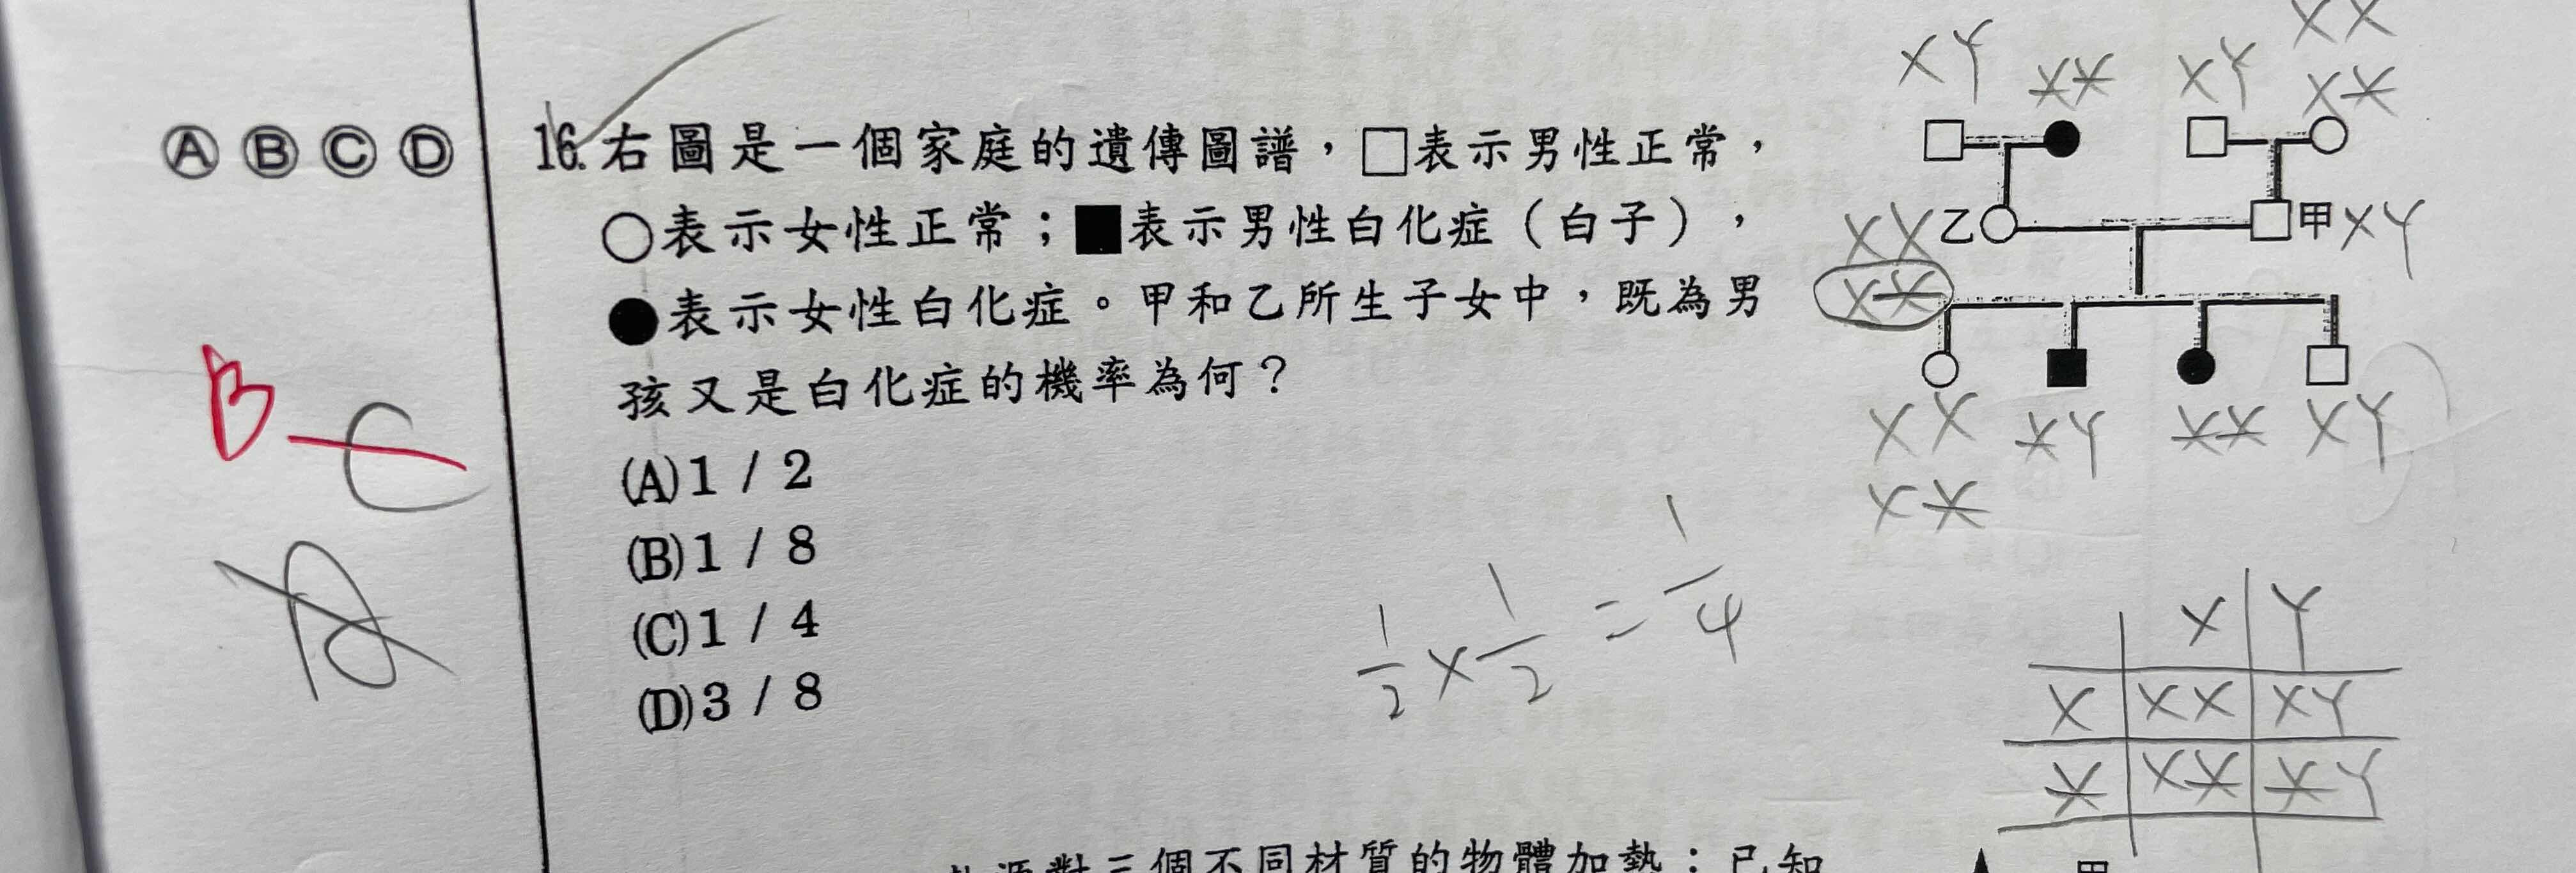 Ⓐ Ⓑ Ⓒ Ⓓ
16. 右圖是一個家庭的遺傳圖譜，□表示男性正常，
○表示女性正常；■表示男性白化症（白子），
●表示女性白化症。甲和乙所生子女中，既為男
孩又是白化症的機率為何？
(A)1 / 2
(B)1 / 8
(C)1 / 4
(D)3 / 8
B
C
1/2 × 1/2 = 1/4
XX
XY XX XY XX
XX 乙 甲 XY
XX
XX XY XX XY
XX
X Y
X XX XY
X XX XY
源對三個不同材質的物體加熱：已知
甲